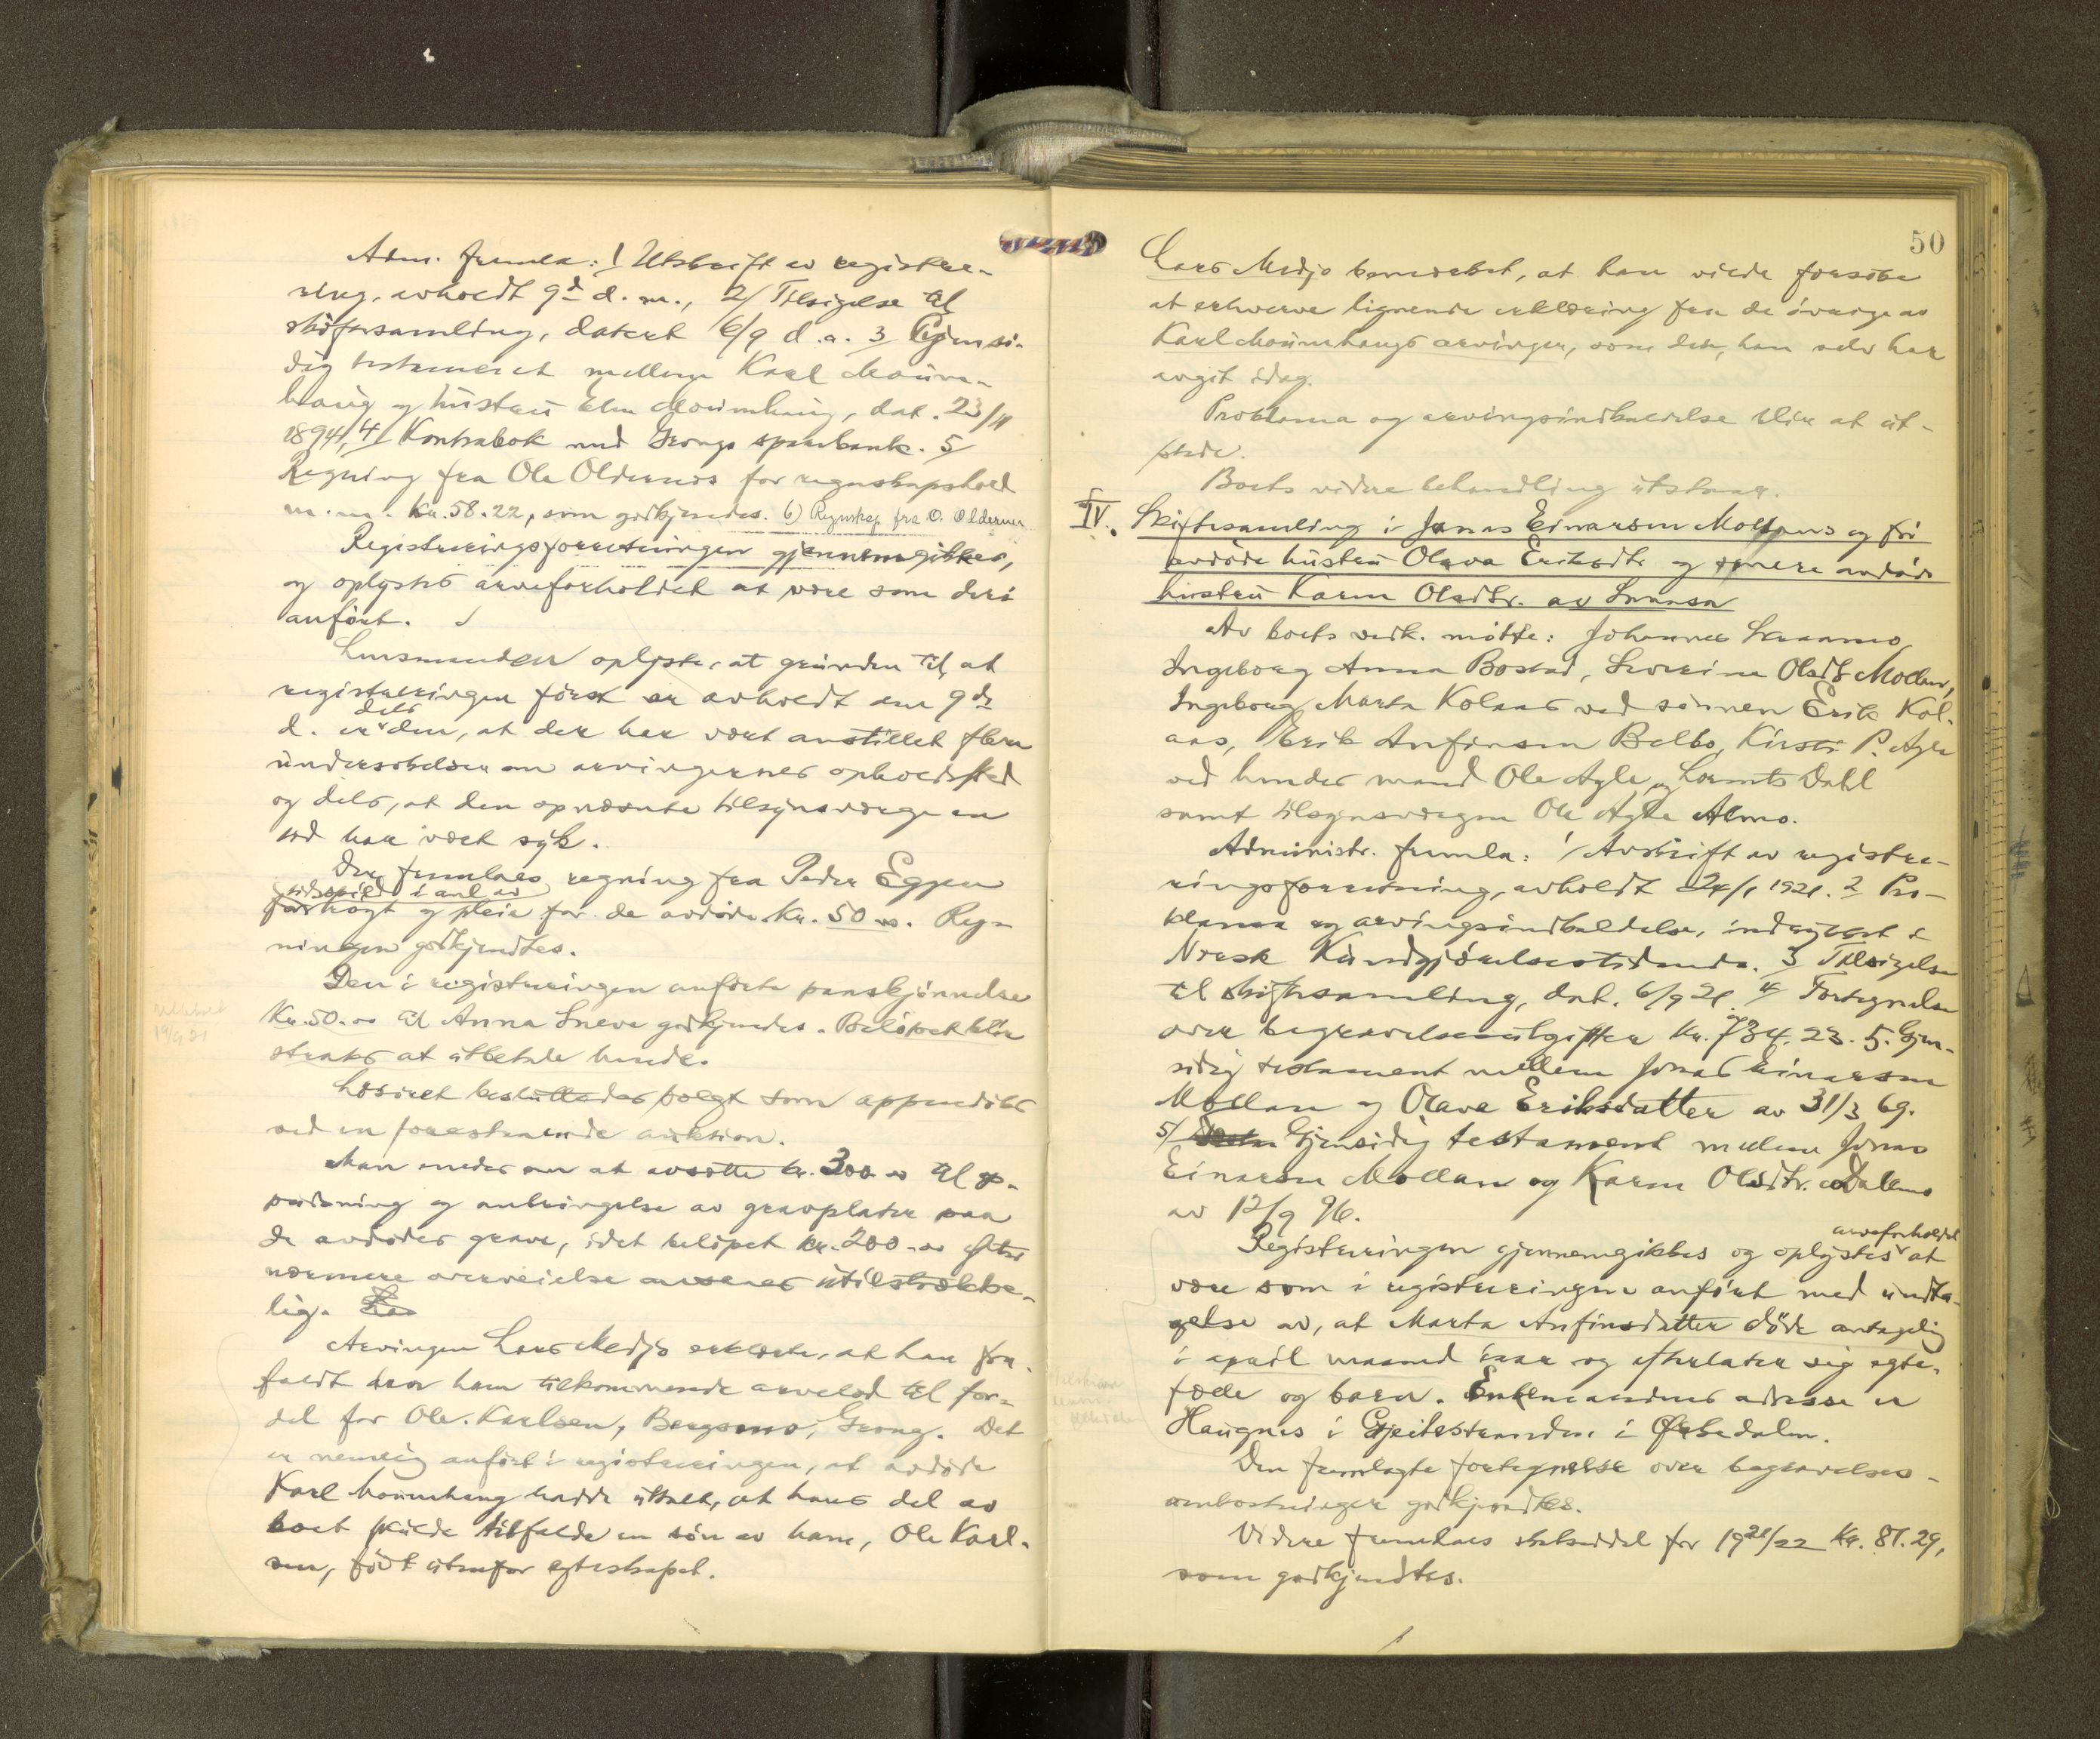 Adm. fremla: 1/ Utskrift av registre-
ring, avholdt 9d d. m., 2/ Tilsigelse til
skiftesamling, datert 6/9 d.a. 3/ Gjensi-
dig testament mellem Karl Moum-
haug og hustru Elen Moumhaug, dat. 23/11
1894, 4/ Kontrabok med Grongs sparebank. 5/
Regning fra Ole Oldernes for regnskapshold
m.m. Kr. 58.22, som godkjendes. 6) Regnskap fra O. Oldernes
Registreringsforretningen gjennemgikkes,
og oplystes arveforholdet at være som deri
anført.
Lensmanden oplyste, at grunden til, at
registreringen først er avholdt den 9de
d. er dels den, at der har vært anstillet flere
undersøkelser om arvingernes opholdssted
og dels, at den opnævnte tilsynsværge en
tid har vært syk.
Der fremlaes regning fra Peder Eggen
for tidsspilde i anl. av
røgt og pleie for de avdøde Kr. 50.00. Reg-
ningen godkjendtes.
Den i registreringen anførte paaskjønnelse
Kr. 50.00 til Anna Sneve godkjendes. Beløpet blir
straks at utbetale hende.
utbetalt
19/9 21
Løsøret besluttedes solgt som appendiks
ved en forestaaende auktion.
Man enedes om at avsætte kr. 300.00 til op-
pudsning og anbringelse av gravplater paa
de avdødes grave, idet beløpet kr. 200.00 efter
nærmere overveielse ansees utilstrække-
lig.
Arvingen Lars Medjo erklærte, at han fra-
faldt den ham tilkommende arvelod til for-
del for Ole Karlsen, Bergsmo, Grong. Det
er nemlig anført i registreringen, at avdøde
Karl Moumhaug hadde uttalt, at hans del av
boet skulde tilfalde en søn av ham, Ole Karl-
sen, født utenfor egteskapet.
50
Lars Medjo bemerket, at han vilde forsøke
at erhverve lignende erklæring fra de øvrige av
Karl Moumhaugs arvinger, som den, han selv har
avgit idag.
Proklama og arvingsindkaldelse blir at ut-
stede.
Boets videre behandling utstaar.
IV. Skiftesamling i Jonas Einarsen Mollans og før
avdøde hustru Olava Eriksdtr. og senere avdøde
hustru Karen Olsdtr. av Snaasa
Av boets vedk. møtte: Johannes
Ingeborg Anna Bostad, Severine Olsdtr Mollan,
Ingeborg Marta Kolaas ved sønnen Erik Kol-
aas, Erik Anfinsen Belbo, Kirsti P. Agle
ved hendes mand Ole Agle, og Lorents Dahl
samt tilsynsværgen Ole Agle Almo.
Administr. fremla: 1/ Avskrift av registre-
ringsforretning, avholdt 24/1 1921. 2 Pro-
klama og arvingsindkaldelse, indrykket i
Norsk Kundgjørelsestidende. 3/ Tilsigelse
til skiftesamling, dat. 6/9 21. 4/ Fortegnelse
over begravelsesutgifter Kr. 734.23. 5. Gjen-
sidig testament mellem Jonas Einarsen
Mollan og Olava Eriksdatter av 31/3 69.
5/ Gjensidig testament mellem Jonas
Einarsen Mollan og Karen Olsdtr.
av 12/9 96.
Registreringen gjennemgikkes og oplystes arveforholdet at
være som i registreringen anført med undta-
gelse av, at Marta Anfinsdatter døde antagelig
i april maaned iaar og efterlater sig egte-
fælle og barn. Enkemandens adresse er
Haugnes i Gjeitestranden i Ørkedalen.
Den fremlagte fortegnelse over begravelses-
omkostninger godkjendtes.
Videre fremlaes skatseddel for 1921/22 Kr. 81.29,
som godkjendtes.